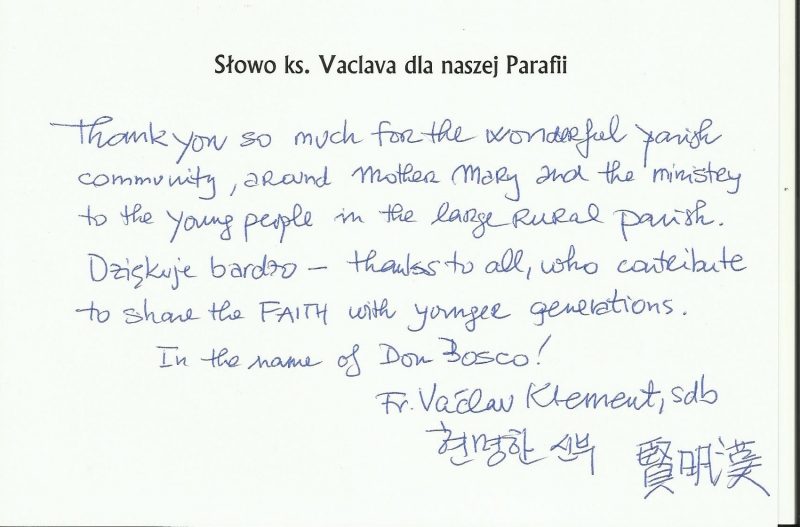 Słowo ks. Vaclava dla naszej Parafii
Thank you so much for the wonderful parish
community, around Mother Mary and the ministry
to the young people in the large rural parish.
Dziękuje bardzo – thanks to all, who contribute
to share the FAITH with younger generations.
In the name of Don Bosco!
Fr. Vaclav Klement, sdb
현명한 신부 賢明漢